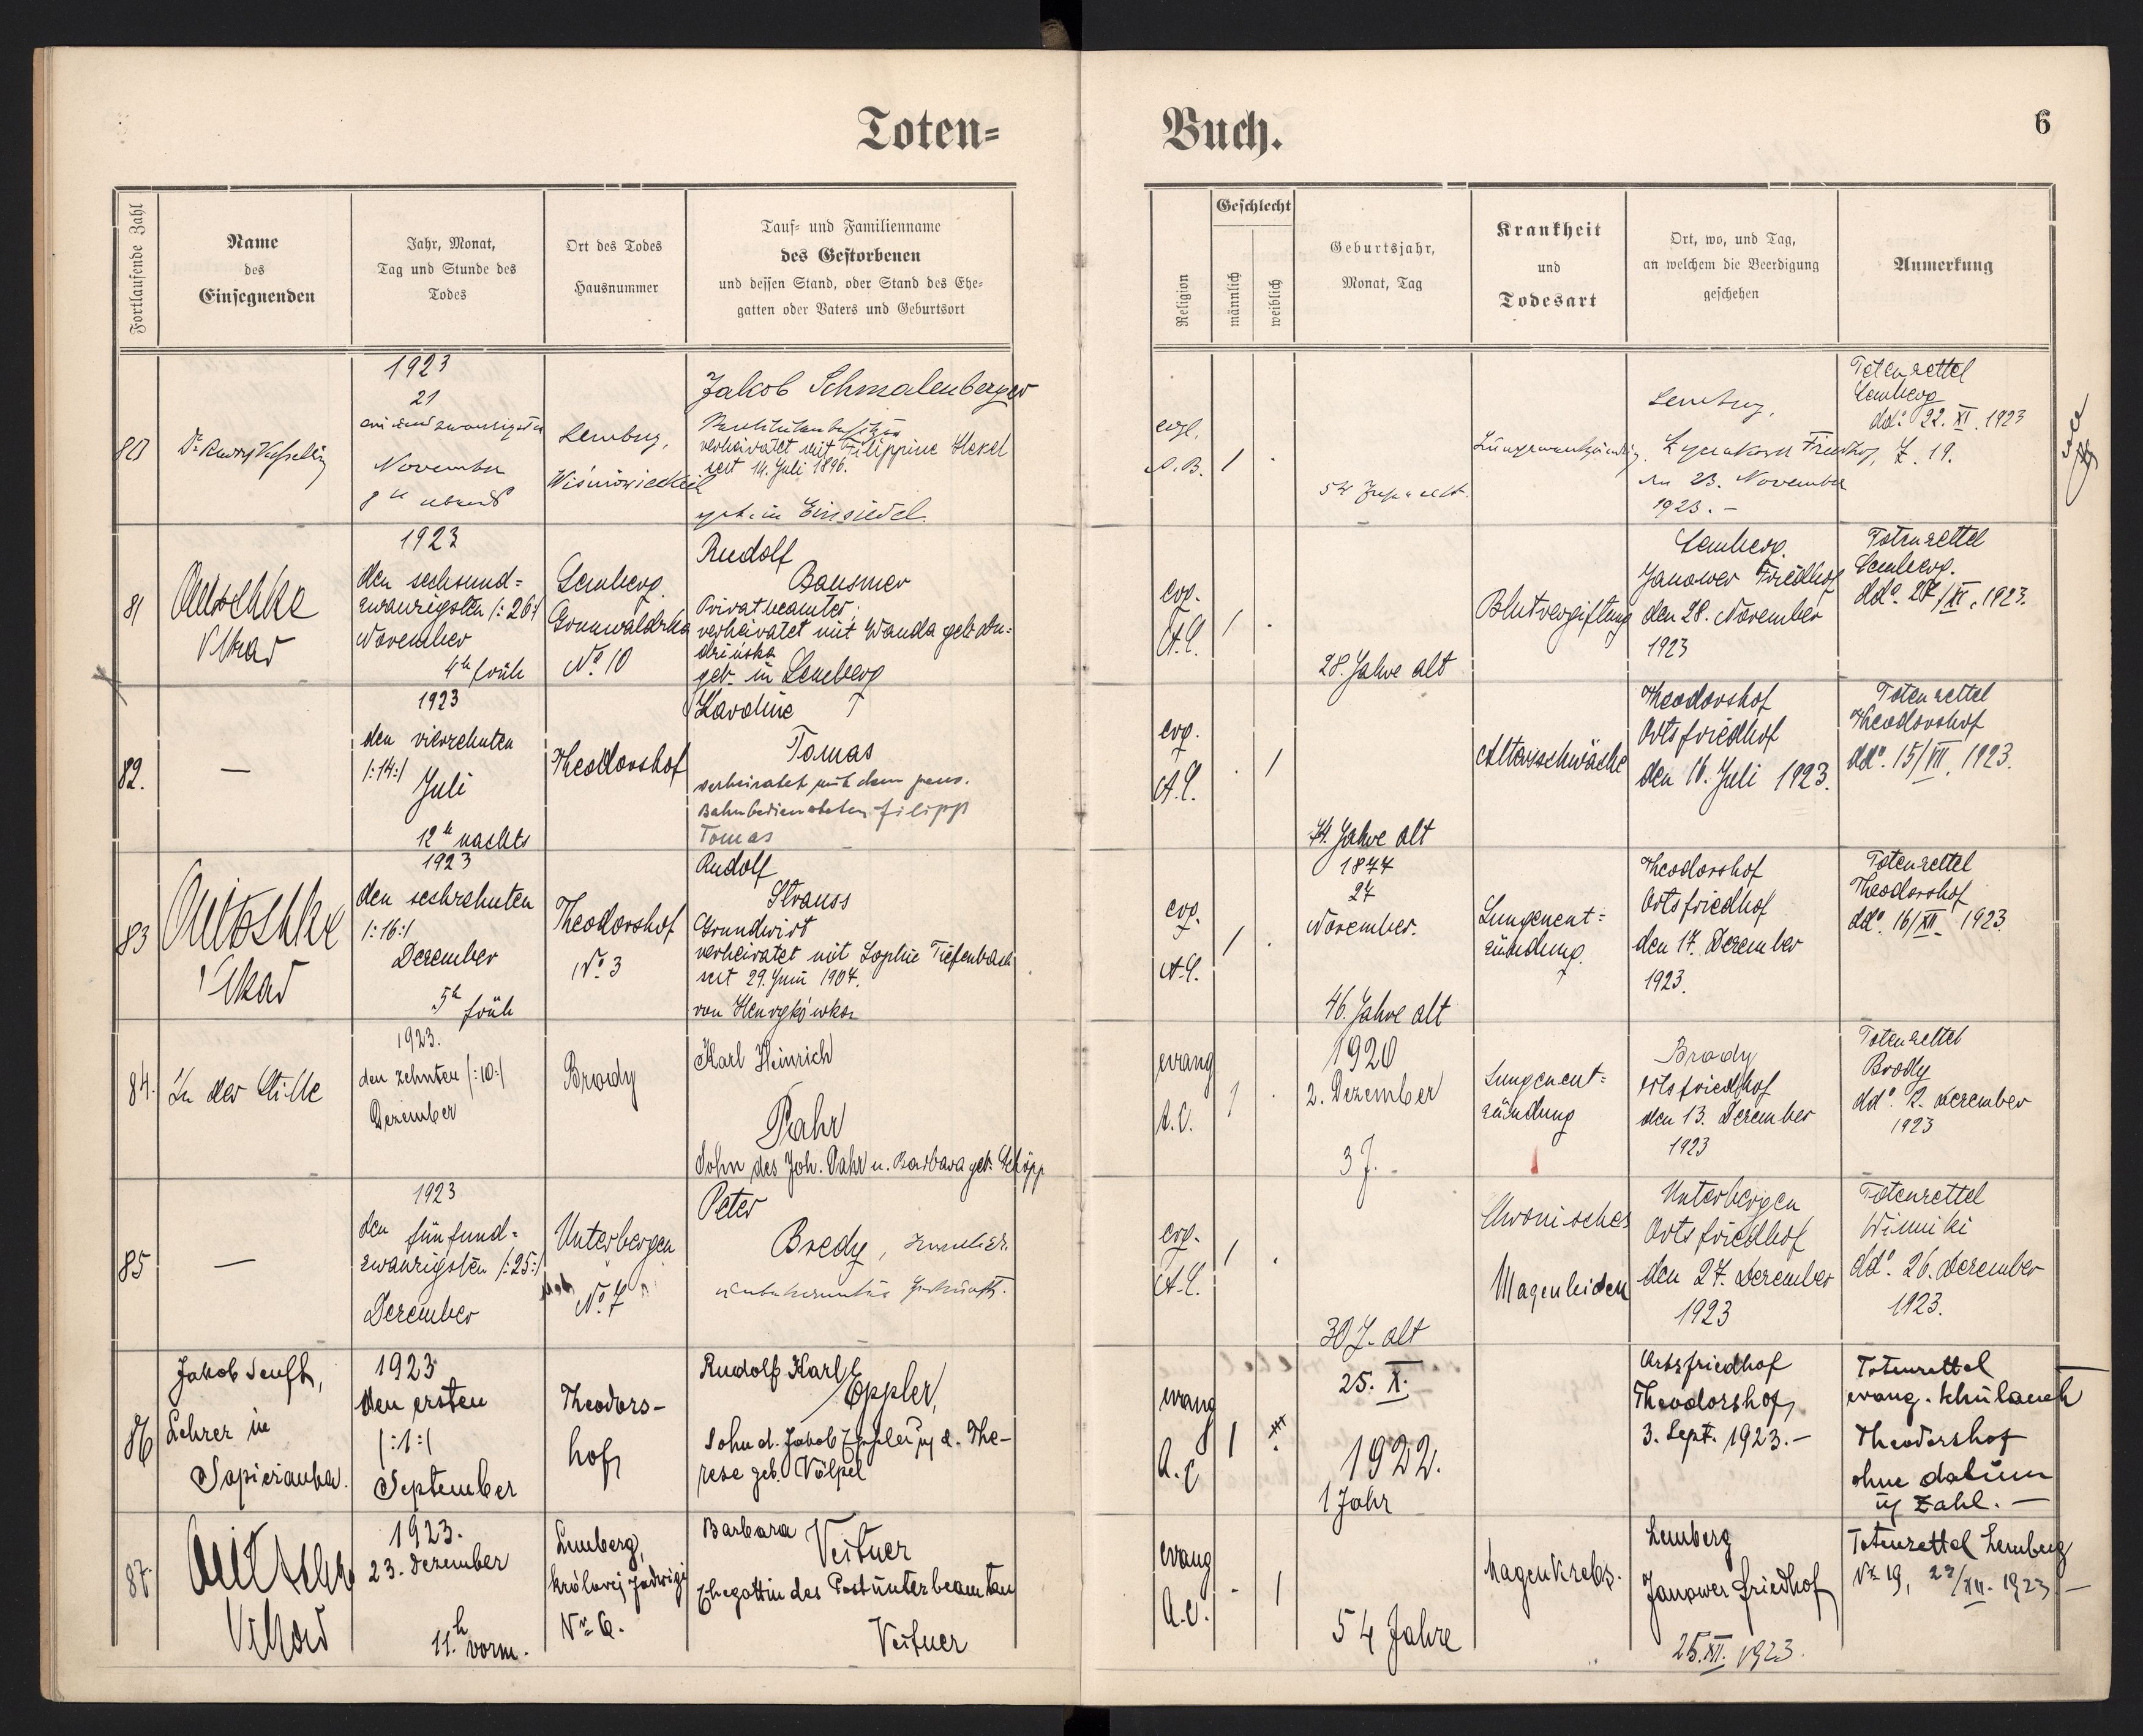 Toten=
Buch.
6
Fortlaufende Zahl
Name
des
Einsegnenden
Jahr, Monat,
Tag und Stunde des
Todes
Ort des Todes
Hausnummer
Tauf= und Familienname
des Gestorbenen
und dessen Stand, oder Stand des Ehe=
gatten oder Vaters und Geburtsort
Religion
Geschlecht
männlich
weiblich
Geburtsjahr,
Monat, Tag
Krankheit
und
Todesart
Ort, wo, und Tag,
an welchem die Beerdigung
geschehen
Anmerkung
80
Dr
1923
21
einundzwanzigsten
November
8 h abends
Lemberg,
Jakob Schmalenberger
verheiratet mit Filippine
seit 14. Juli 1896.
geb. in Einsiedel
evgl.
A.B.
1
.
52 Jahre alt.
Lungenentzündung
Lemberg,
Friedhof,
den 23. November
1923.-
Totenzettel
Lemberg
ddo. 22. XI. 1923
Z. 19.
81
Vikar
1923
den sechsund=
zwanzigsten /:26:/
November
4h früh
Lemberg.
Grunwaldzka
No 10
Rudolf
Bausmer
Privatbeamter,
verheiratet mit Wanda geb.
geb. in Lemberg
evg.
A.C.
1
.
28. Jahre alt
Blutvergiftung
Lemberg.
Janower Friedhof
den 28. November
1923
Totenzettel
Lemberg.
ddo. 27/XI. 1923.
82.
—
1923
den vierzehnten
/:14:/
Juli
12h nachts
Theodorshof
Karoline
Tomas
verheiratet mit dem pens.
Bahnbediensteten Filipp
Tomas
evg.
A.C.
.
1
74. Jahre alt
Altersschwäche
Theodorshof
Ortsfriedhof
den 16. Juli 1923.
Totenzettel
Theodorshof
ddo. 15/VII. 1923.
83
Vikar
1923
den sechzehnten
/:16:/
Dezember
5h früh
Theodorshof
No. 3
Rudolf
Strauss
Grundwirt
verheiratet mit Sophie Tiefenbach
seit 29. Juni 1904.
von
evg.
A.C.
1
.
1877
27
November.
46. Jahre alt
Lungenent=
zündung.
Theodorshof
Ortsfriedhof
den 17. Dezember
1923.
Totenzettel
Theodorshof
ddo. 16/XII. 1923.
84.
In der Stille
1923.
den zehnten /:10:/
Dezember
Brody
Karl Heinrich
Pahr
Sohn des Joh. Pahr u. Barbara geb. Schöpp
evang
A.C.
1
.
1920
2. Dezember
3 J. -
Lungenent=
zündung
Brody
Ortsfriedhof
den 13. Dezember
1923
Totenzettel
Brody
ddo. 12. Dezember
1923
85
—
1923
den fünfund=
zwanzigsten /:25:/
Dezember
Unterbergen
No. 7
Peter
Bredy,
evg.
A.C.
1
.
30 J. alt
Chronisches
Magenleiden
Unterbergen
Ortsfriedhof
den 27. Dezember
1923
Totenzettel
Winniki
ddo. 26. Dezember
1923.
86
Jakob Senft,
Lehrer in
Sapieżanka.
1923
den ersten
/:1:/
September
Theodors-
hof
Rudolf Karl
Eppler,
Sohn d. Jakob Eppler u. d. The-
rese geb. Völpel
evang
A.C
1
25. X.
1922.
1 Jahr
Ortsfriedhof
Theodorshof,
3. Sept. 1923.-
Totenzettel
evang. Schulamt
Theodorshof
ohne Datum
u. Zahl. —
87.
Vikar
1923.
23. Dezember
11.h vorm.
Lemberg,
królowej Jadwigi
Nr 6.
Barbara Veituer
Ehegattin des Postunterbeamten
Veituer
evang
A.C.
.
1
54 Jahre
Magenkrebs.
Lemberg
Janower Friedhof
25.XII. 1923.
Totenzettel Lemberg
No 19, 23/XII. 1923 —